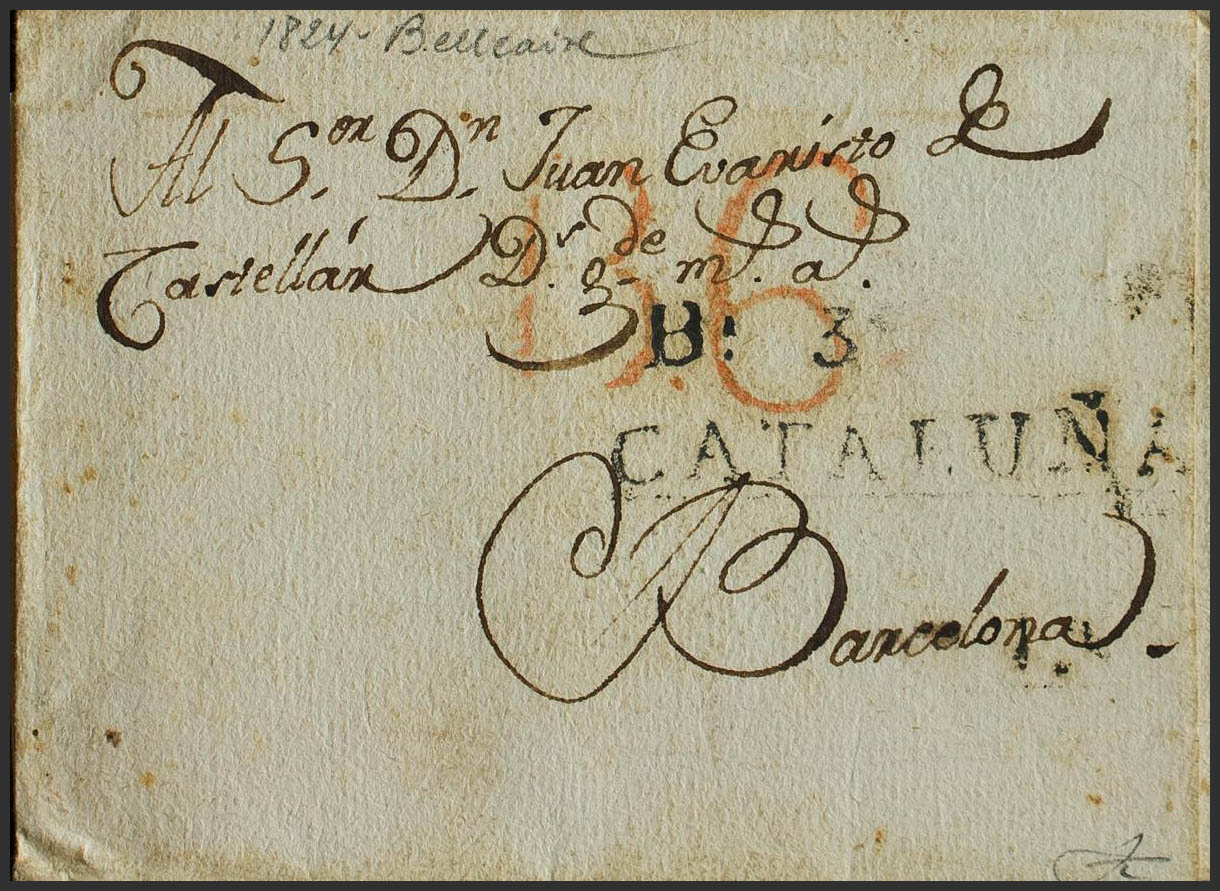 1824 - Bellcaire
Al S.or D.n Juan Evaristo de
Castellán D.r g.de m.s a.s
36
B: 3
CATALUÑA
Barcelona.